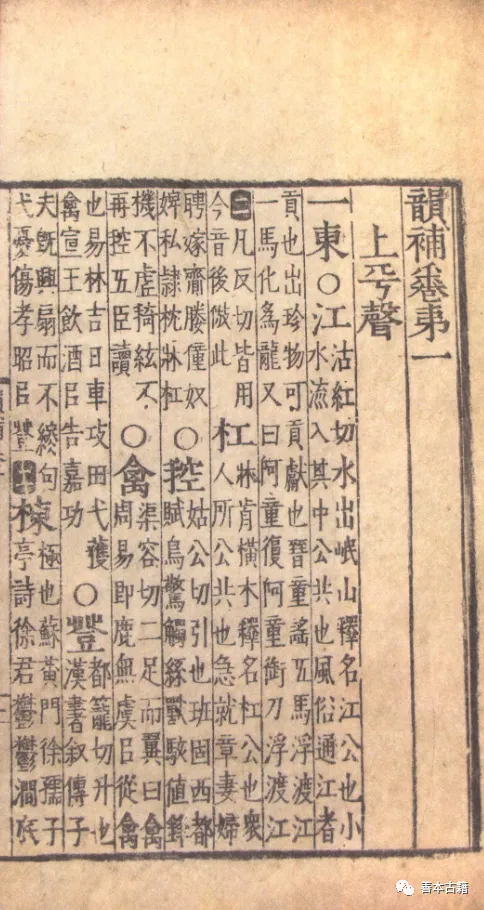 韻補卷第一
上平聲
一東○江沽紅切水出岷山釋名江公也小
水流入其中公共也風俗通江者
貢也出珍物可貢獻也晉童謠五馬浮渡江
一馬化為龍又曰阿童復阿童銜刀浮渡江
二凡反切皆用
今音後倣此
杠牀前橫木釋名杠公也眾
人所公共也急就章妻婦
聘嫁齎媵僮奴
婢私隸枕牀杠
○控姑公切引也班固西都
賦鳥驚觸絲獸駭值鋒
機不虛掎絃不
再控五臣讀
○禽渠容切二足而翼曰禽
周易即鹿無虞㠯從禽
也易林吉日車攻田弋獲
禽宣王飲酒㠯告嘉功
○登都籠切升也
漢書叙傳子
夫旣興扇而不終句
弋憂傷孝昭㠯登
棟極也蘇黃門徐孺子
亭詩徐君鬱鬱澗底
善本古籍